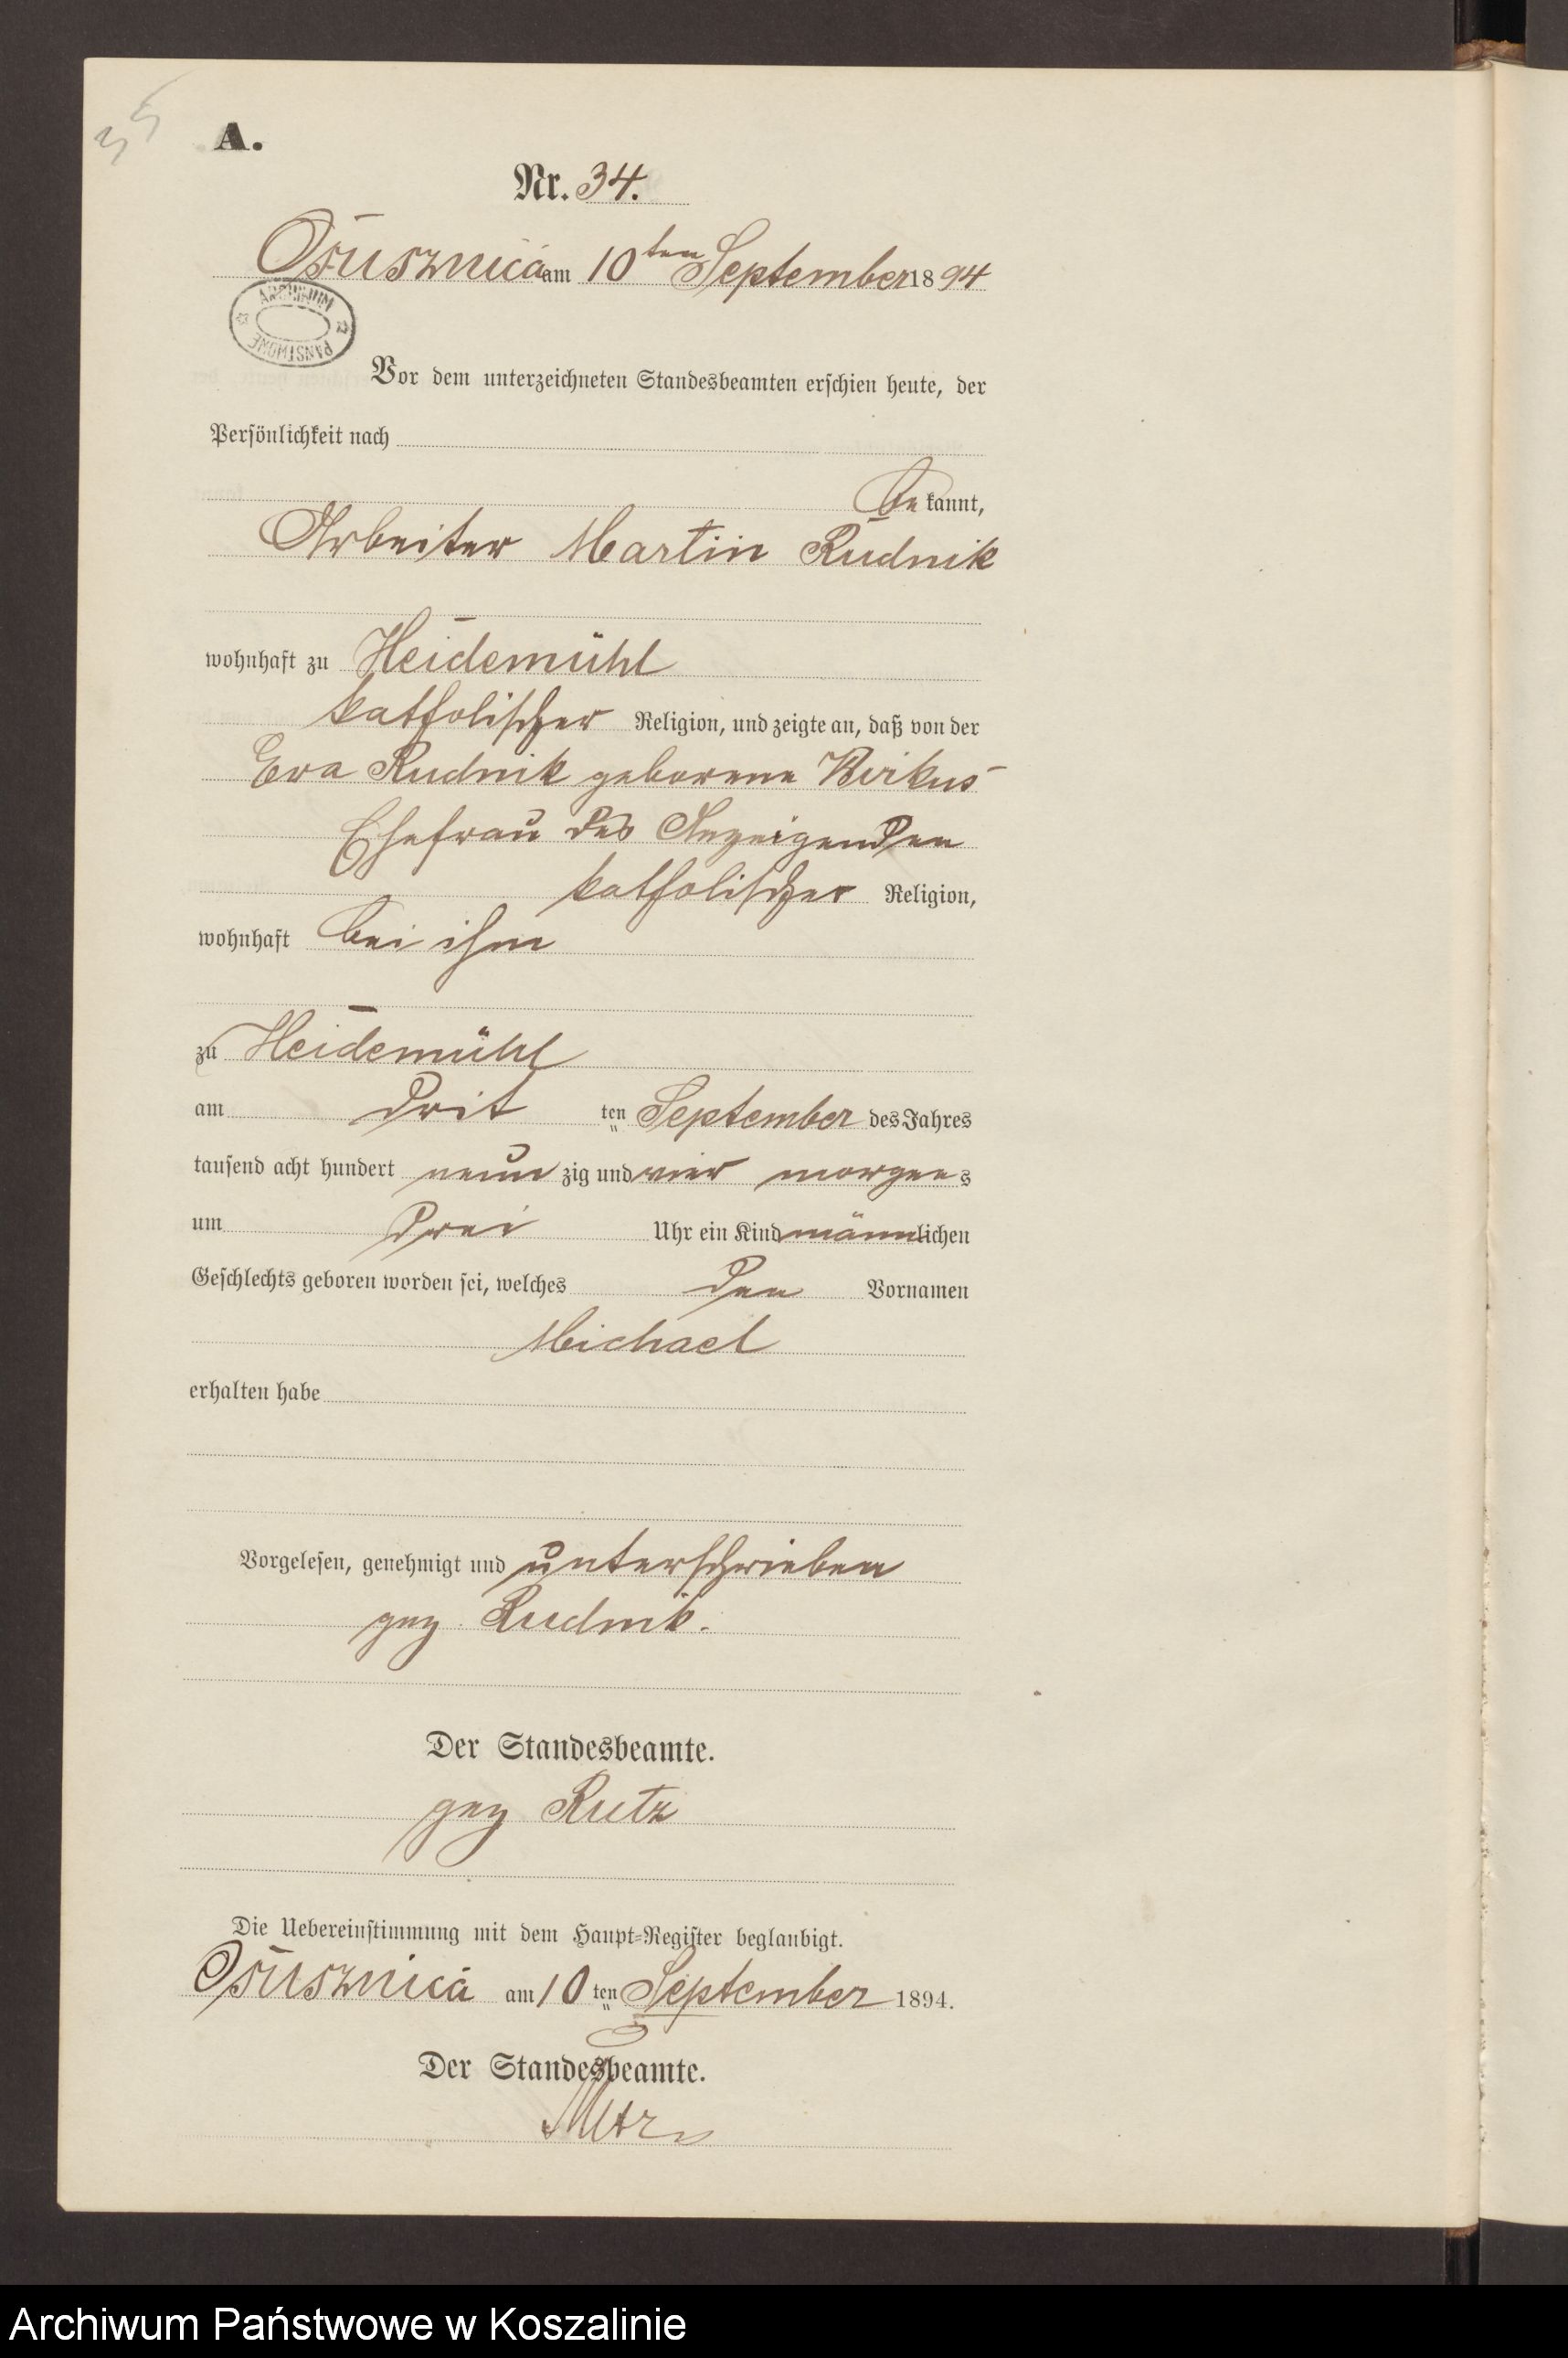 35
A.
Nr. 34.
Osusznica am 10ten September 1894
ARCHIWUM PAŃSTWOWE
Vor dem unterzeichneten Standesbeamten erschien heute, der
Persönlichkeit nach
bekannt,
Arbeiter Martin Rudnik
wohnhaft zu Heidemühl
katholischer Religion, und zeigte an, daß von der
Eva Rudnik geborene Wirkus
Ehefrau des Anzeigenden
katholischer Religion,
wohnhaft bei ihm
zu Heidemühl
am dritten September des Jahres
tausend acht hundert neunzig und vier morgens
um drei Uhr ein Kind männlichen
Geschlechts geboren worden sei, welches den Vornamen
Michael
erhalten habe
Vorgelesen, genehmigt und unterschrieben
gez Rudnik.
Der Standesbeamte.
gez Rutz
Die Uebereinstimmung mit dem Haupt-Register beglaubigt.
Osusznica am 10ten September 1894.
Der Standesbeamte.
Rutz
Archiwum Państwowe w Koszalinie